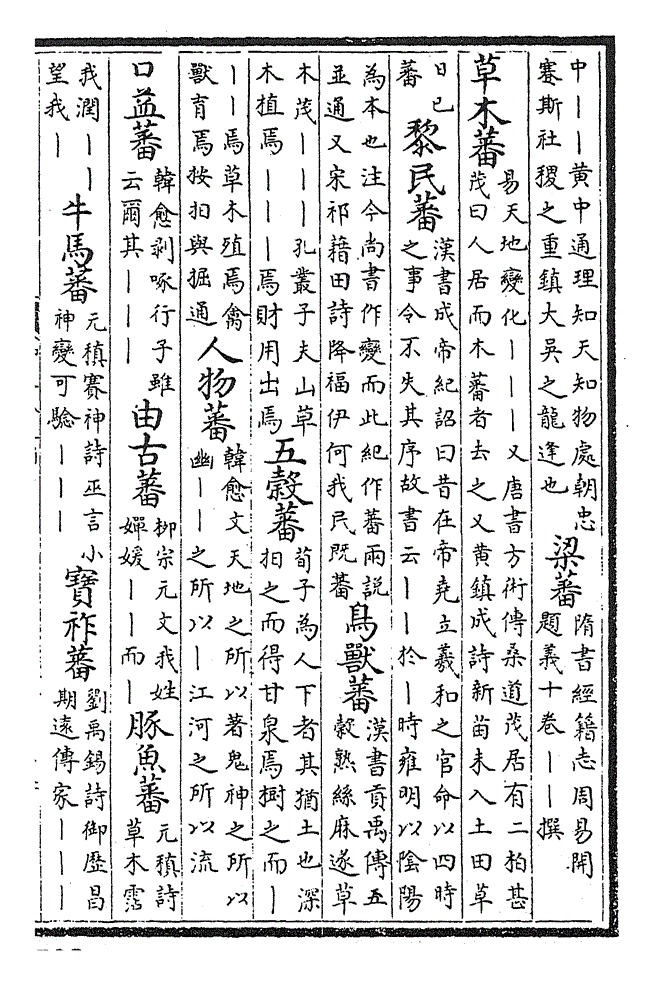 中丨丨黄中通理知天知物處朝忠
賽斯社稷之重鎮大吳之龍逄也
梁蕃
隋書經籍志周易開
題義十卷丨丨撰
草木蕃
易天地變化丨丨丨又唐書方術傳桑道茂居有二柏甚
茂曰人居而木蕃者去之又黄鎮成詩新苗未入土田草
日已
蕃
黎民蕃
漢書成帝紀詔曰昔在帝堯立羲和之官命以四時
之事令不失其序故書云丨丨於丨時雍明以陰陽
為本也注今尚書作變而此紀作蕃兩説
並通又宋祁藉田詩降福伊何我民既蕃
鳥獸蕃
漢書貢禹傳五
穀熟絲麻遂草
木茂丨丨丨孔叢子夫山草
木植焉丨丨丨焉財用出焉
五穀蕃
荀子為人下者其猶土也深
抇之而得甘泉焉樹之而丨
丨丨焉草木殖焉禽
獸育焉按抇與掘通
人物蕃
韓愈文天地之所以著鬼神之所以
幽丨丨之所以丨江河之所以流
口益蕃
韓愈剥啄行子雖
云爾其丨丨丨
由古蕃
栁宗元文我姓
嬋媛丨丨而丨
豚魚蕃
元稹詩
草木露
我潤丨丨
望我丨
牛馬蕃
元稹賽神詩巫言小
神變可驗丨丨丨
寶祚蕃
劉禹錫詩御歷昌
期遠傳家丨丨丨